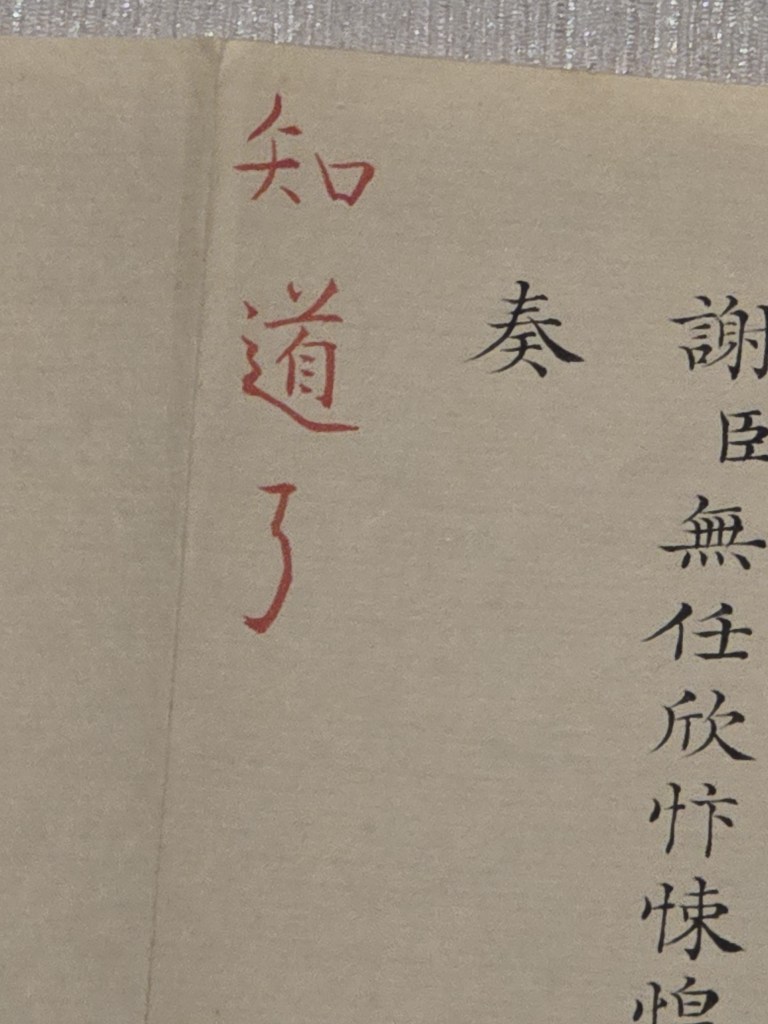 謝臣無任欣忭悚惶
奏
知道了